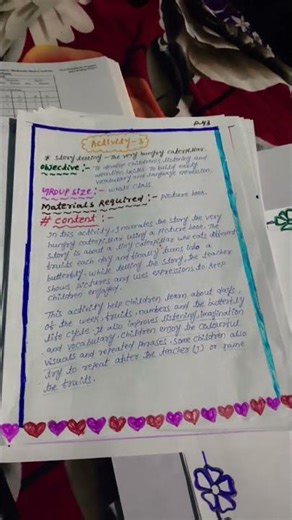 P-43
Activity-3
* Story telling - The very hungry caterpillar.
Objective :- To develop children's listening and
attention skills. To build early
vocabulary and language expression.
Group Size :- whole class
Materials Required :- picture book.
# Content :-
In this activity, I narrates the story the very
hungry caterpillar using a picture book. The
story is about a tiny caterpillar who eats different
fruits each day and finally turns into a
butterfly. while telling the story, the teacher
shows pictures and uses expressions to keep
children engaged.
This activity help children learn about days
of the week, fruits, numbers and the butterfly
life cycle. It also improves listening, imagination
and vocabulary. Children enjoy the colourful
visuals and repeated phrases. Some children also
try to repeat after the teacher (s) or name
the fruits.